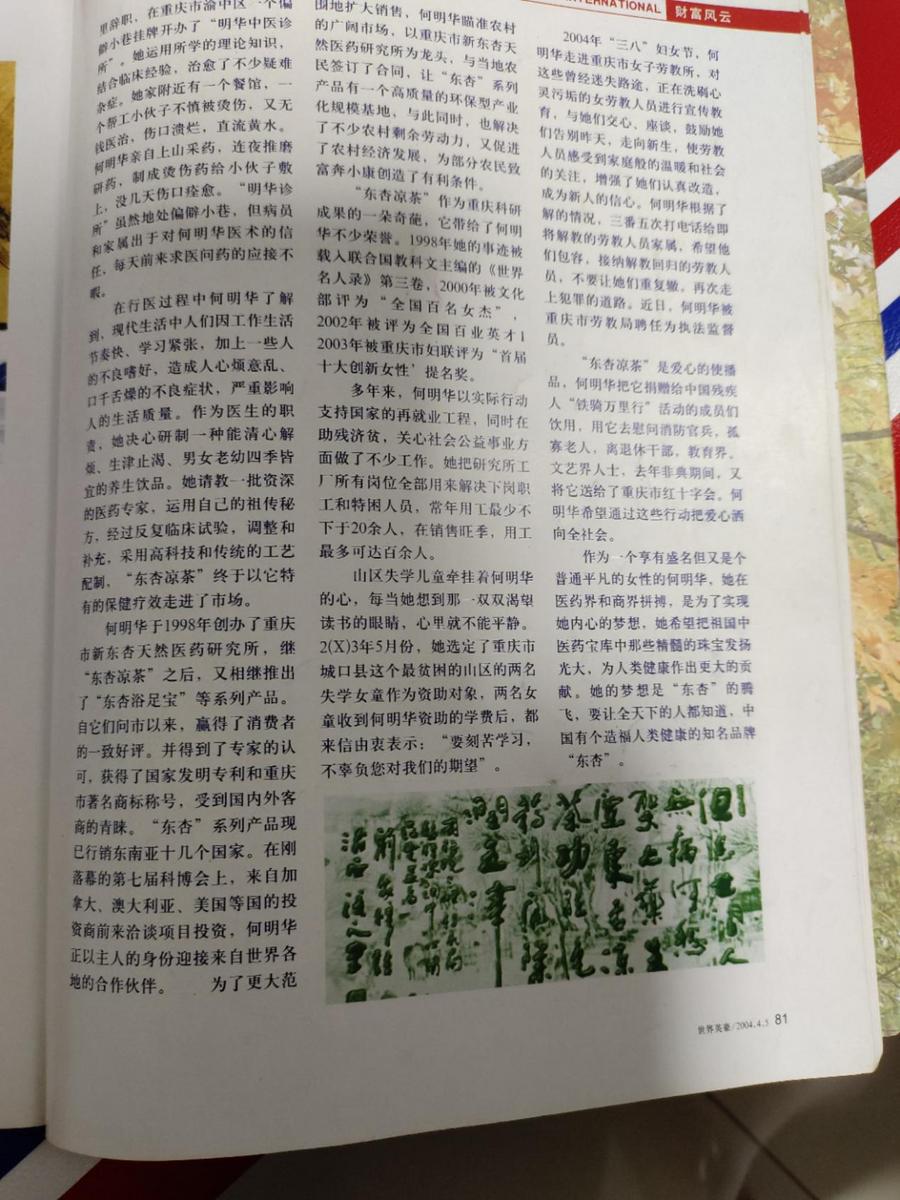 INTERNATIONAL
财富风云
里辞职，在重庆市渝中区一个偏
僻小巷挂牌开办了“明华中医诊
所”。她运用所学的理论知识，
结合临床经验，治愈了不少疑难
杂症。她家附近有一个餐馆，一
个帮工小伙子不慎被烫伤，又无
钱医治，伤口溃烂，直流黄水。
何明华亲自上山采药，连夜推磨
研药，制成烫伤药给小伙子敷
上，没几天伤口痊愈。“明华诊
所”虽然地处偏僻小巷，但病员
和家属出于对何明华医术的信
任，每天前来求医问药的应接不
暇。
在行医过程中何明华了解
到，现代生活中人们因工作生活
节奏快、学习紧张，加上一些人
的不良嗜好，造成人心烦意乱、
口干舌燥的不良症状，严重影响
人的生活质量。作为医生的职
责，她决心研制一种能清心解
烦、生津止渴、男女老幼四季皆
宜的养生饮品。她请教一批资深
的医药专家，运用自己的祖传秘
方，经过反复临床试验，调整和
补充，采用高科技和传统的工艺
配制，“东杏凉茶”终于以它特
有的保健疗效走进了市场。
何明华于1998年创办了重庆
市新东杏天然医药研究所，继
“东杏凉茶”之后，又相继推出
了“东杏浴足宝”等系列产品。
自它们问市以来，赢得了消费者
的一致好评。并得到了专家的认
可，获得了国家发明专利和重庆
市著名商标称号，受到国内外客
商的青睐。“东杏”系列产品现
已行销东南亚十几个国家。在刚
落幕的第七届科博会上，来自加
拿大、澳大利亚、美国等国的投
资商前来洽谈项目投资，何明华
正以主人的身份迎接来自世界各
地的合作伙伴。 为了更大范
围地扩大销售，何明华瞄准农村
的广阔市场，以重庆市新东杏天
然医药研究所为龙头，与当地农
民签订了合同，让“东杏”系列
产品有一个高质量的环保型产业
化规模基地，与此同时，也解决
了不少农村剩余劳动力，又促进
了农村经济发展，为部分农民致
富奔小康创造了有利条件。
“东杏凉茶”作为重庆科研
成果的一朵奇葩，它带给了何明
华不少荣誉。1998年她的事迹被
载入联合国教科文主编的《世界
名人录》第三卷，2000年被文化
部评为“全国百名女杰”，
2002年被评为全国百业英才1
2003年被重庆市妇联评为“首届
十大创新女性’提名奖。
多年来，何明华以实际行动
支持国家的再就业工程，同时在
助残济贫，关心社会公益事业方
面做了不少工作。她把研究所工
厂所有岗位全部用来解决下岗职
工和特困人员，常年用工最少不
下于20余人，在销售旺季，用工
最多可达百余人。
山区失学儿童牵挂着何明华
的心，每当她想到那一双双渴望
读书的眼睛，心里就不能平静。
2(X)3年5月份，她选定了重庆市
城口县这个最贫困的山区的两名
失学女童作为资助对象，两名女
童收到何明华资助的学费后，都
来信由衷表示：“要刻苦学习，
不辜负您对我们的期望”。
2004年“三八”妇女节，何
明华走进重庆市女子劳教所，对
这些曾经迷失路途，正在洗刷心
灵污垢的女劳教人员进行宣传教
育，与她们交心、座谈，鼓励她
们告别昨天，走向新生，使劳教
人员感受到家庭般的温暖和社会
的关注，增强了她们认真改造，
成为新人的信心。何明华根据了
解的情况，三番五次打电话给即
将解教的劳教人员家属，希望他
们包容，接纳解教回归的劳教人
员，不要让她们重复辙，再次走
上犯罪的道路。近日，何明华被
重庆市劳教局聘任为执法监督
员。
“东杏凉茶”是爱心的使播
品，何明华把它捐赠给中国残疾
人“铁骑万里行”活动的成员们
饮用，用它去慰问消防官兵，孤
寡老人，离退休干部，教育界，
文艺界人士，去年非典期间，又
将它送给了重庆市红十字会。何
明华希望通过这些行动把爱心洒
向全社会。
作为一个享有盛名但又是个
普通平凡的女性的何明华，她在
医药界和商界拼搏，是为了实现
她内心的梦想，她希望把祖国中
医药宝库中那些精髓的珠宝发扬
光大，为人类健康作出更大的贡
献。她的梦想是“东杏”的腾
飞，要让全天下的人都知道，中
国有个造福人类健康的知名品牌
“东杏”。
世界英豪/2004.4.5 81